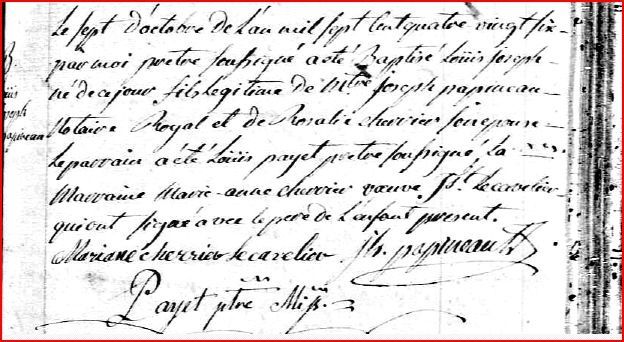 Le sept d'octobre de l'an mil sept cent quatre vingt six
par moi prêtre soussigné a été Baptisé Loüis joseph
né de ce jour fils legitime de Mtre joseph papineau
Notaire Royal et de Rosalie cherrier son epouse
Le parrain a été Loüis payet prêtre soussigné, La
Marraine Marie-anne cherrier veuve Lecavelier
qui ont signé avec le pere de L'enfant present.
Mariane cherrier lecavelier jh. papineau
Payet ptre Miss.
B.
Loüis
joseph
papineau